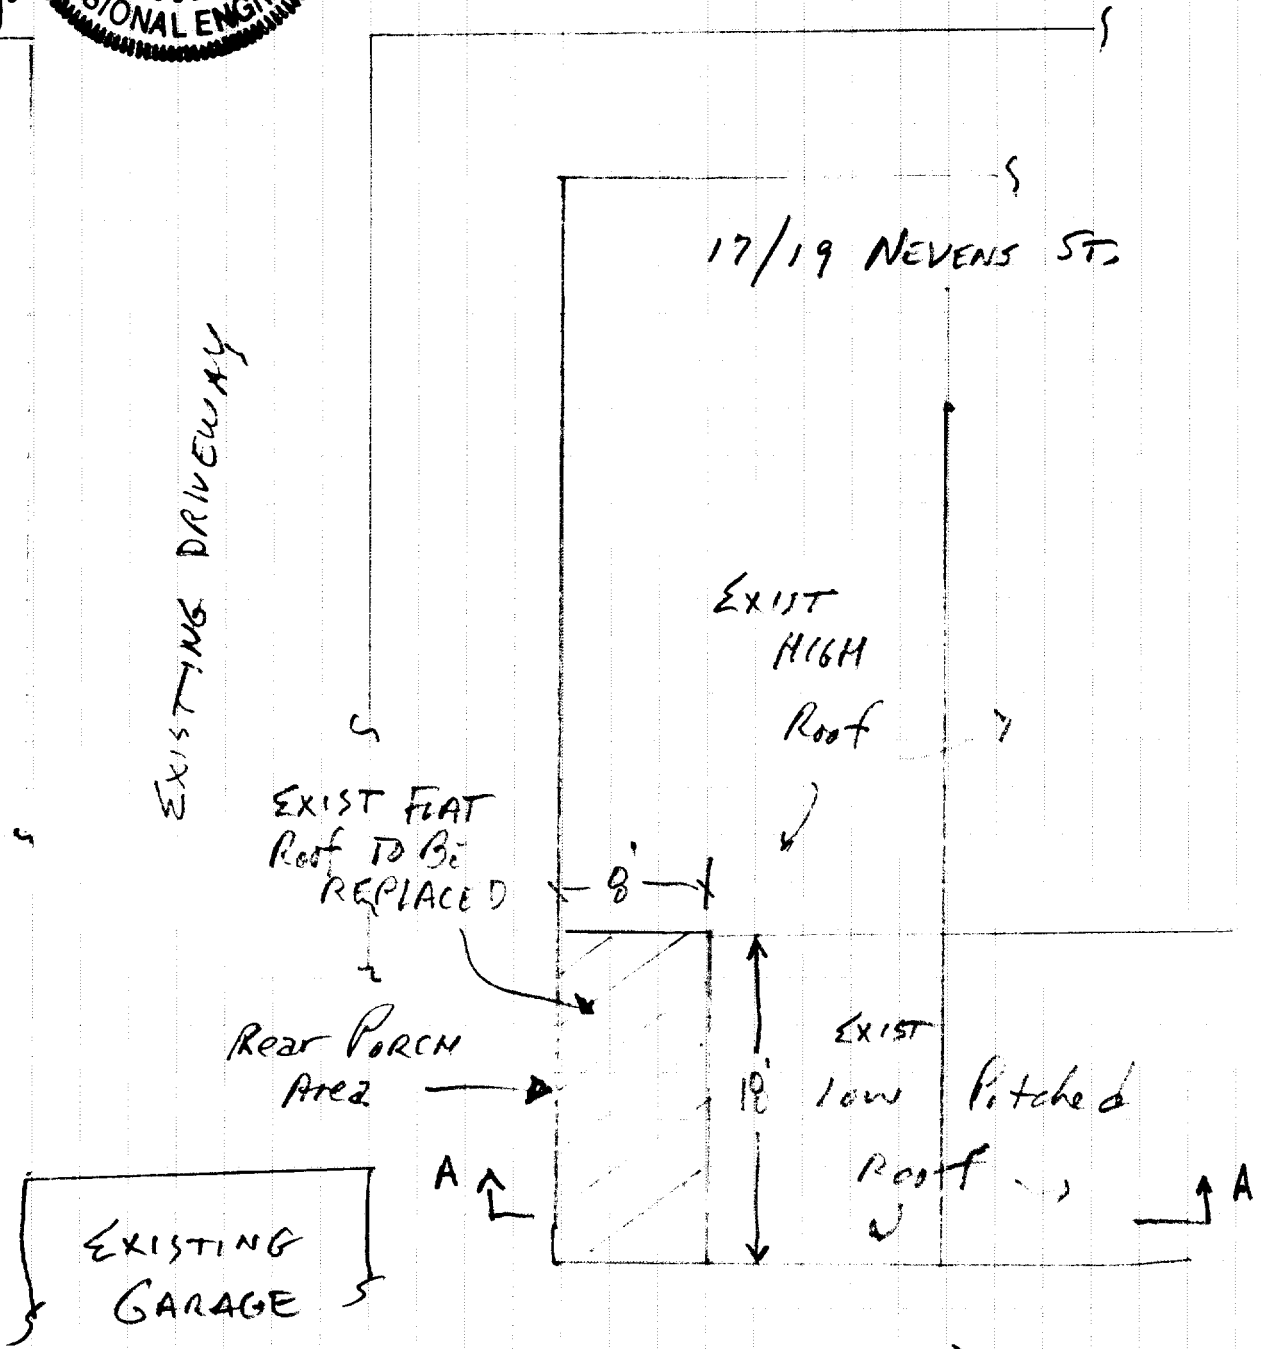 SIONAL ENGI
17/19 NEVENS ST.
EXISTING DRIVEWAY
EXIST
HIGH
Roof
EXIST FLAT
Roof TO BE
REPLACED
8'
Rear PORCH
Area
18'
EXIST
low Pitched
Roof
A
A
EXISTING
GARAGE